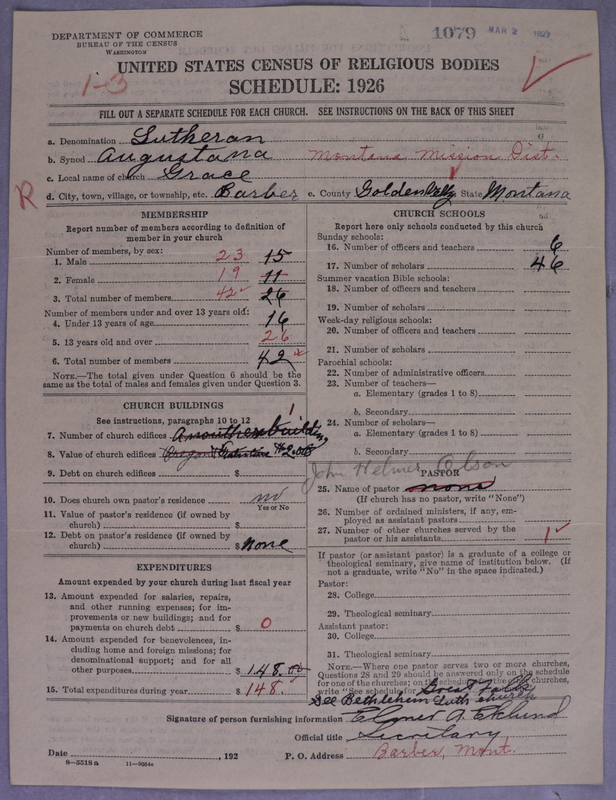 DEPARTMENT OF COMMERCE
BUREAU OF THE CENSUS
WASHINGTON
1079 MAR 2 1927
UNITED STATES CENSUS OF RELIGIOUS BODIES
1-3
SCHEDULE: 1926
FILL OUT A SEPARATE SCHEDULE FOR EACH CHURCH. SEE INSTRUCTIONS ON THE BACK OF THIS SHEET
a. Denomination Lutheran
b. Synod Augustana Montana Mission Dist.
c. Local name of church Grace
R d. City, town, village, or township, etc. Barber e. County Golden Vally State Montana
MEMBERSHIP
Report number of members according to definition of
member in your church
Number of members, by sex:
1. Male 23 15
2. Female 19 11
3. Total number of members 42 26
Number of members under and over 13 years old:
4. Under 13 years of age 16
5. 13 years old and over 26
6. Total number of members 42
NOTE.—The total given under Question 6 should be
same as the total of males and females given under Question 3.
CHURCH BUILDINGS
See instructions, paragraphs 10 to 12
7. Number of church edifices 1 building
8. Value of church edifices $2,000
9. Debt on church edifices $
10. Does church own pastor's residence no
Yes or No
11. Value of pastor's residence (if owned by
church) $
12. Debt on pastor's residence (if owned by
church) $ None
EXPENDITURES
Amount expended by your church during last fiscal year
13. Amount expended for salaries, repairs,
and other running expenses; for im-
provements or new buildings; and for
payments on church debt $ 0
14. Amount expended for benevolences, in-
cluding home and foreign missions; for
denominational support; and for all
other purposes $ 148.04
15. Total expenditures during year $ 148.
CHURCH SCHOOLS
Report here only schools conducted by this church
Sunday schools:
16. Number of officers and teachers 6
17. Number of scholars 46
Summer vacation Bible schools:
18. Number of officers and teachers
19. Number of scholars
Week-day religious schools:
20. Number of officers and teachers
21. Number of scholars
Parochial schools:
22. Number of administrative officers
23. Number of teachers—
a. Elementary (grades 1 to 8)
b. Secondary
24. Number of scholars—
a. Elementary (grades 1 to 8)
b. Secondary
John Helmer Olson
PASTOR
25. Name of pastor none
(If church has no pastor, write "None")
26. Number of ordained ministers, if any, em-
ployed as assistant pastors
27. Number of other churches served by the
pastor or his assistants 1
If pastor (or assistant pastor) is a graduate of a college or
theological seminary, give name of institution below. (If
not a graduate, write "No" in the space indicated.)
Pastor:
28. College
29. Theological seminary
Assistant pastor:
30. College
31. Theological seminary
NOTE.—Where one pastor serves two or more churches,
Questions 28 and 29 should be answered only on the schedule
for one of the churches; on the schedules for the other churches
write "See schedule for Great Falls
See Bethlehem Luth church
Signature of person furnishing information Elmer A. Eklund
Official title Secretary
Date , 192 P. O. Address Barber, Mont.
8—5518 a